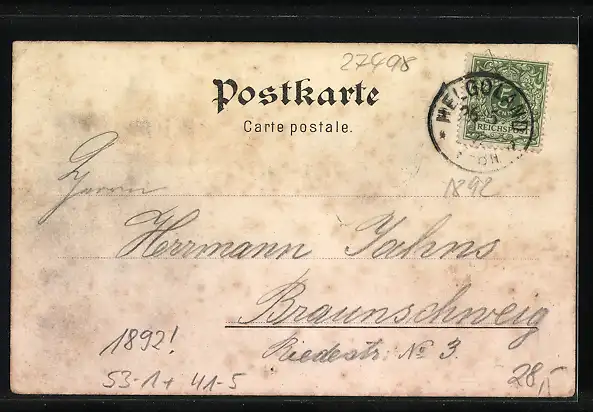 27498
Postkarte
Carte postale.
HELGOLAND
5
REICHSPOST
1892
Herrn
Herrmann Jahns
Braunschweig
Riedestr. No 3.
1892!
53-1+ 41-5
28,-